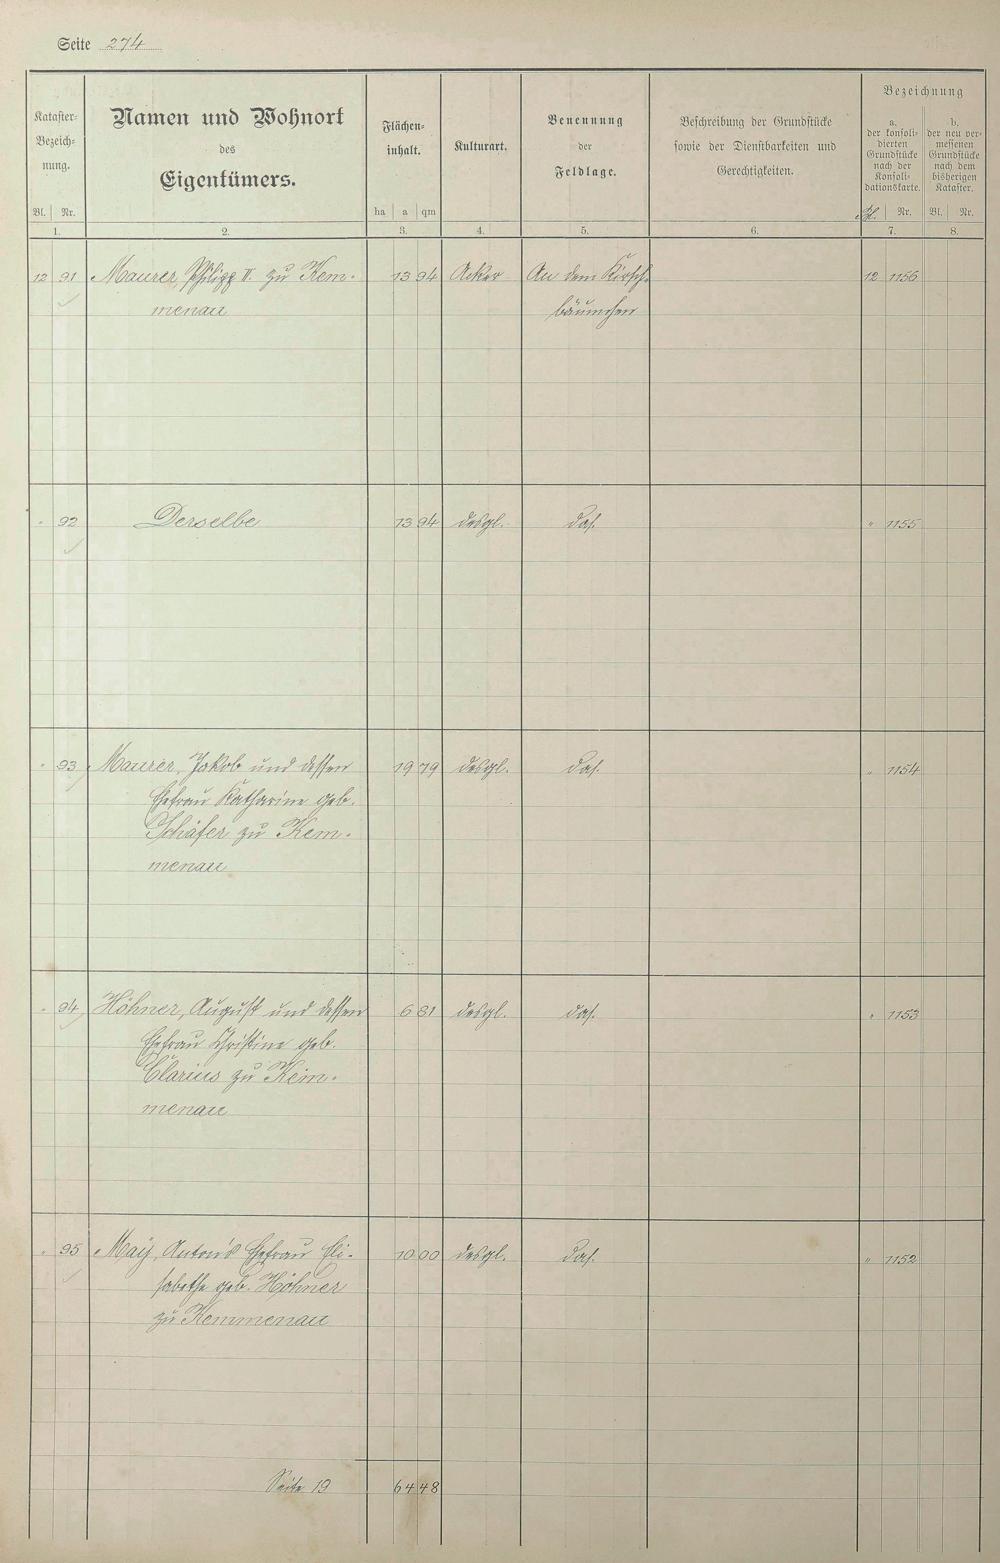 Seite 274
Kataster-
Bezeich-
nung.
Bl. Nr.
1.
Namen und Wohnort
des
Eigentümers.
2.
Flächen-
inhalt.
ha a qm
3.
Kulturart.
4.
Benennung
der
Feldlage.
5.
Beschreibung der Grundstücke
sowie der Dienstbarkeiten und
Gerechtigkeiten.
6.
Bezeichnung
a.
der konsoli-
dierten
Grundstücke
nach der
Konsoli-
dationskarte.
Bl. Nr.
7.
b.
der neu ver-
messenen
Grundstücke
nach dem
bisherigen
Kataster.
Bl. Nr.
8.
12 91 Maurer, Philipp II. zu Kem- 13 94 Acker An dem Kirsch- 12 1156
menau bäumchen
" 92 Derselbe 13 94 desgl. das. " 1155
" 93 Maurer, Jakob und dessen 19 79 desgl. das. " 1154
Ehefrau Katharine geb.
Schäfer zu Kem-
menau
" 94 Höhner, August und dessen 6 81 desgl. das. " 1153
Ehefrau Christine geb.
Clarius zu Kem-
menau
" 95 Maij, Anton's Ehefrau Eli- 10 00 desgl. das. " 1152
sabethe geb. Höhner
zu Kemmenau
Seite 19 64 48